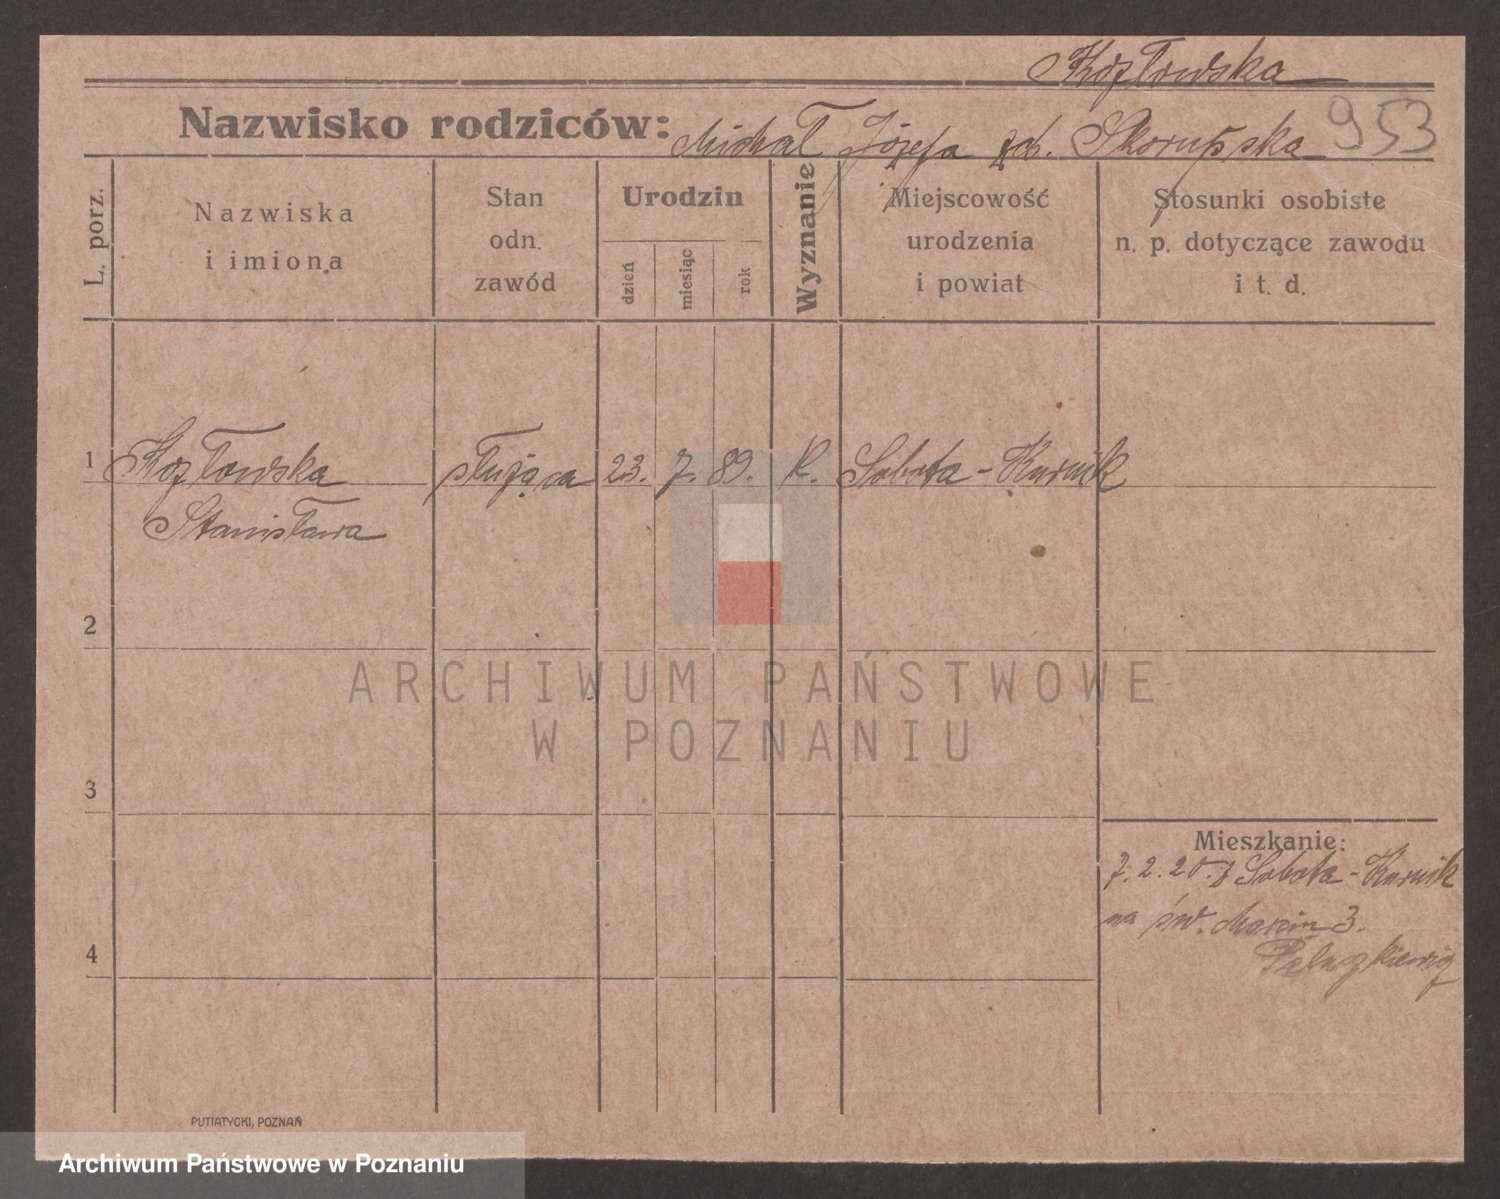 Kozłowska
Nazwisko rodziców: Michał Józefa zd. Skorupska 953
L. porz.
Nazwiska
i imiona
Stan
odn.
zawód
Urodzin
dzień
miesiąc
rok
Wyznanie
Miejscowość
urodzenia
i powiat
Stosunki osobiste
n. p. dotyczące zawodu
i t. d.
1 Kozłowska służąca 23. 7. 89. k. Sobota - Kurnik
Stanisława
2
ARCHIWUM PAŃSTWOWE
W POZNANIU
3
Mieszkanie:
7. 2. 20. z Sobota - Kurnik
na św. Marcin 3.
4
PUTIATYCKI, POZNAŃ
Archiwum Państwowe w Poznaniu